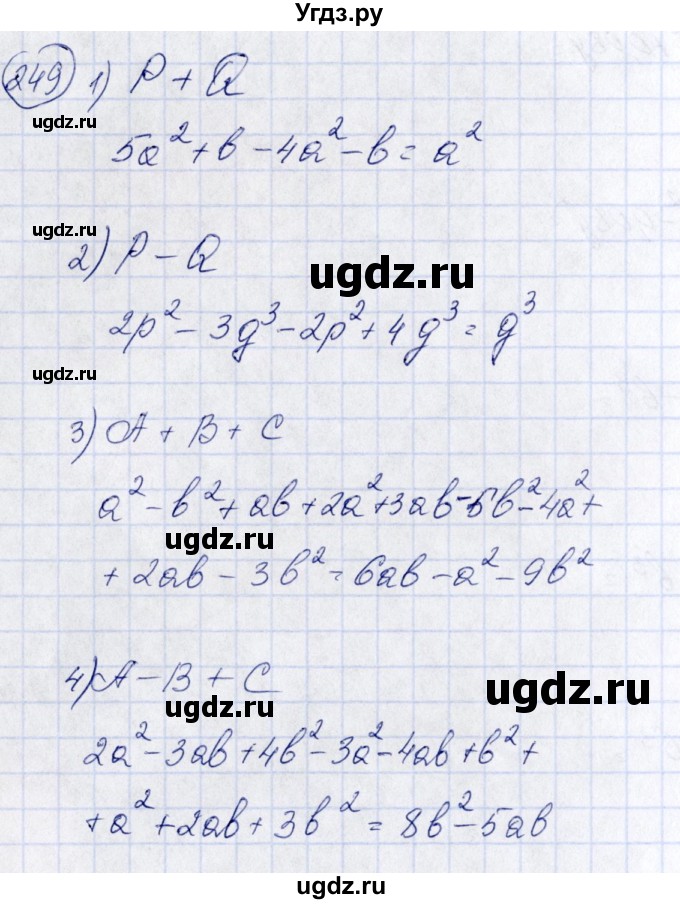 Угдз.ру
249 1) P + Q
ugdz.ru
5a² + b - 4a² - b = a²
ugdz.ru
2) P - Q
ugdz.ru
2p² - 3g³ - 2p² + 4g³ = g³
ugdz.ru
3) A + B + C
a² - b² + ab + 2a² + 3ab - 5b² - 4a² +
ugdz.ru
+ 2ab - 3b² = 6ab - a² - 9b²
4) A - B + C
ugdz.ru
ugdz.ru
2a² - 3ab + 4b² - 3a² - 4ab + b² +
+ a² + 2ab + 3b² = 8b² - 5ab
ugdz.ru